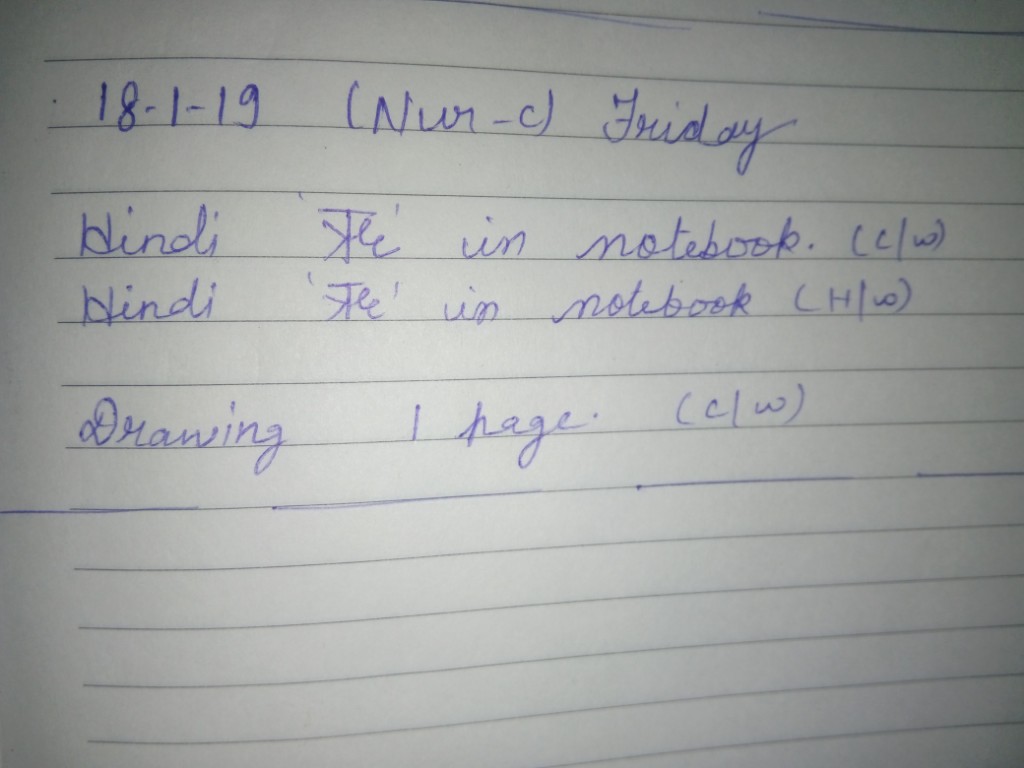 18-1-19 (Nur-C) Friday
Hindi 'ऋ' in notebook. (C/W)
Hindi 'ऋ' in notebook (H/W)
Drawing 1 page. (C/W)